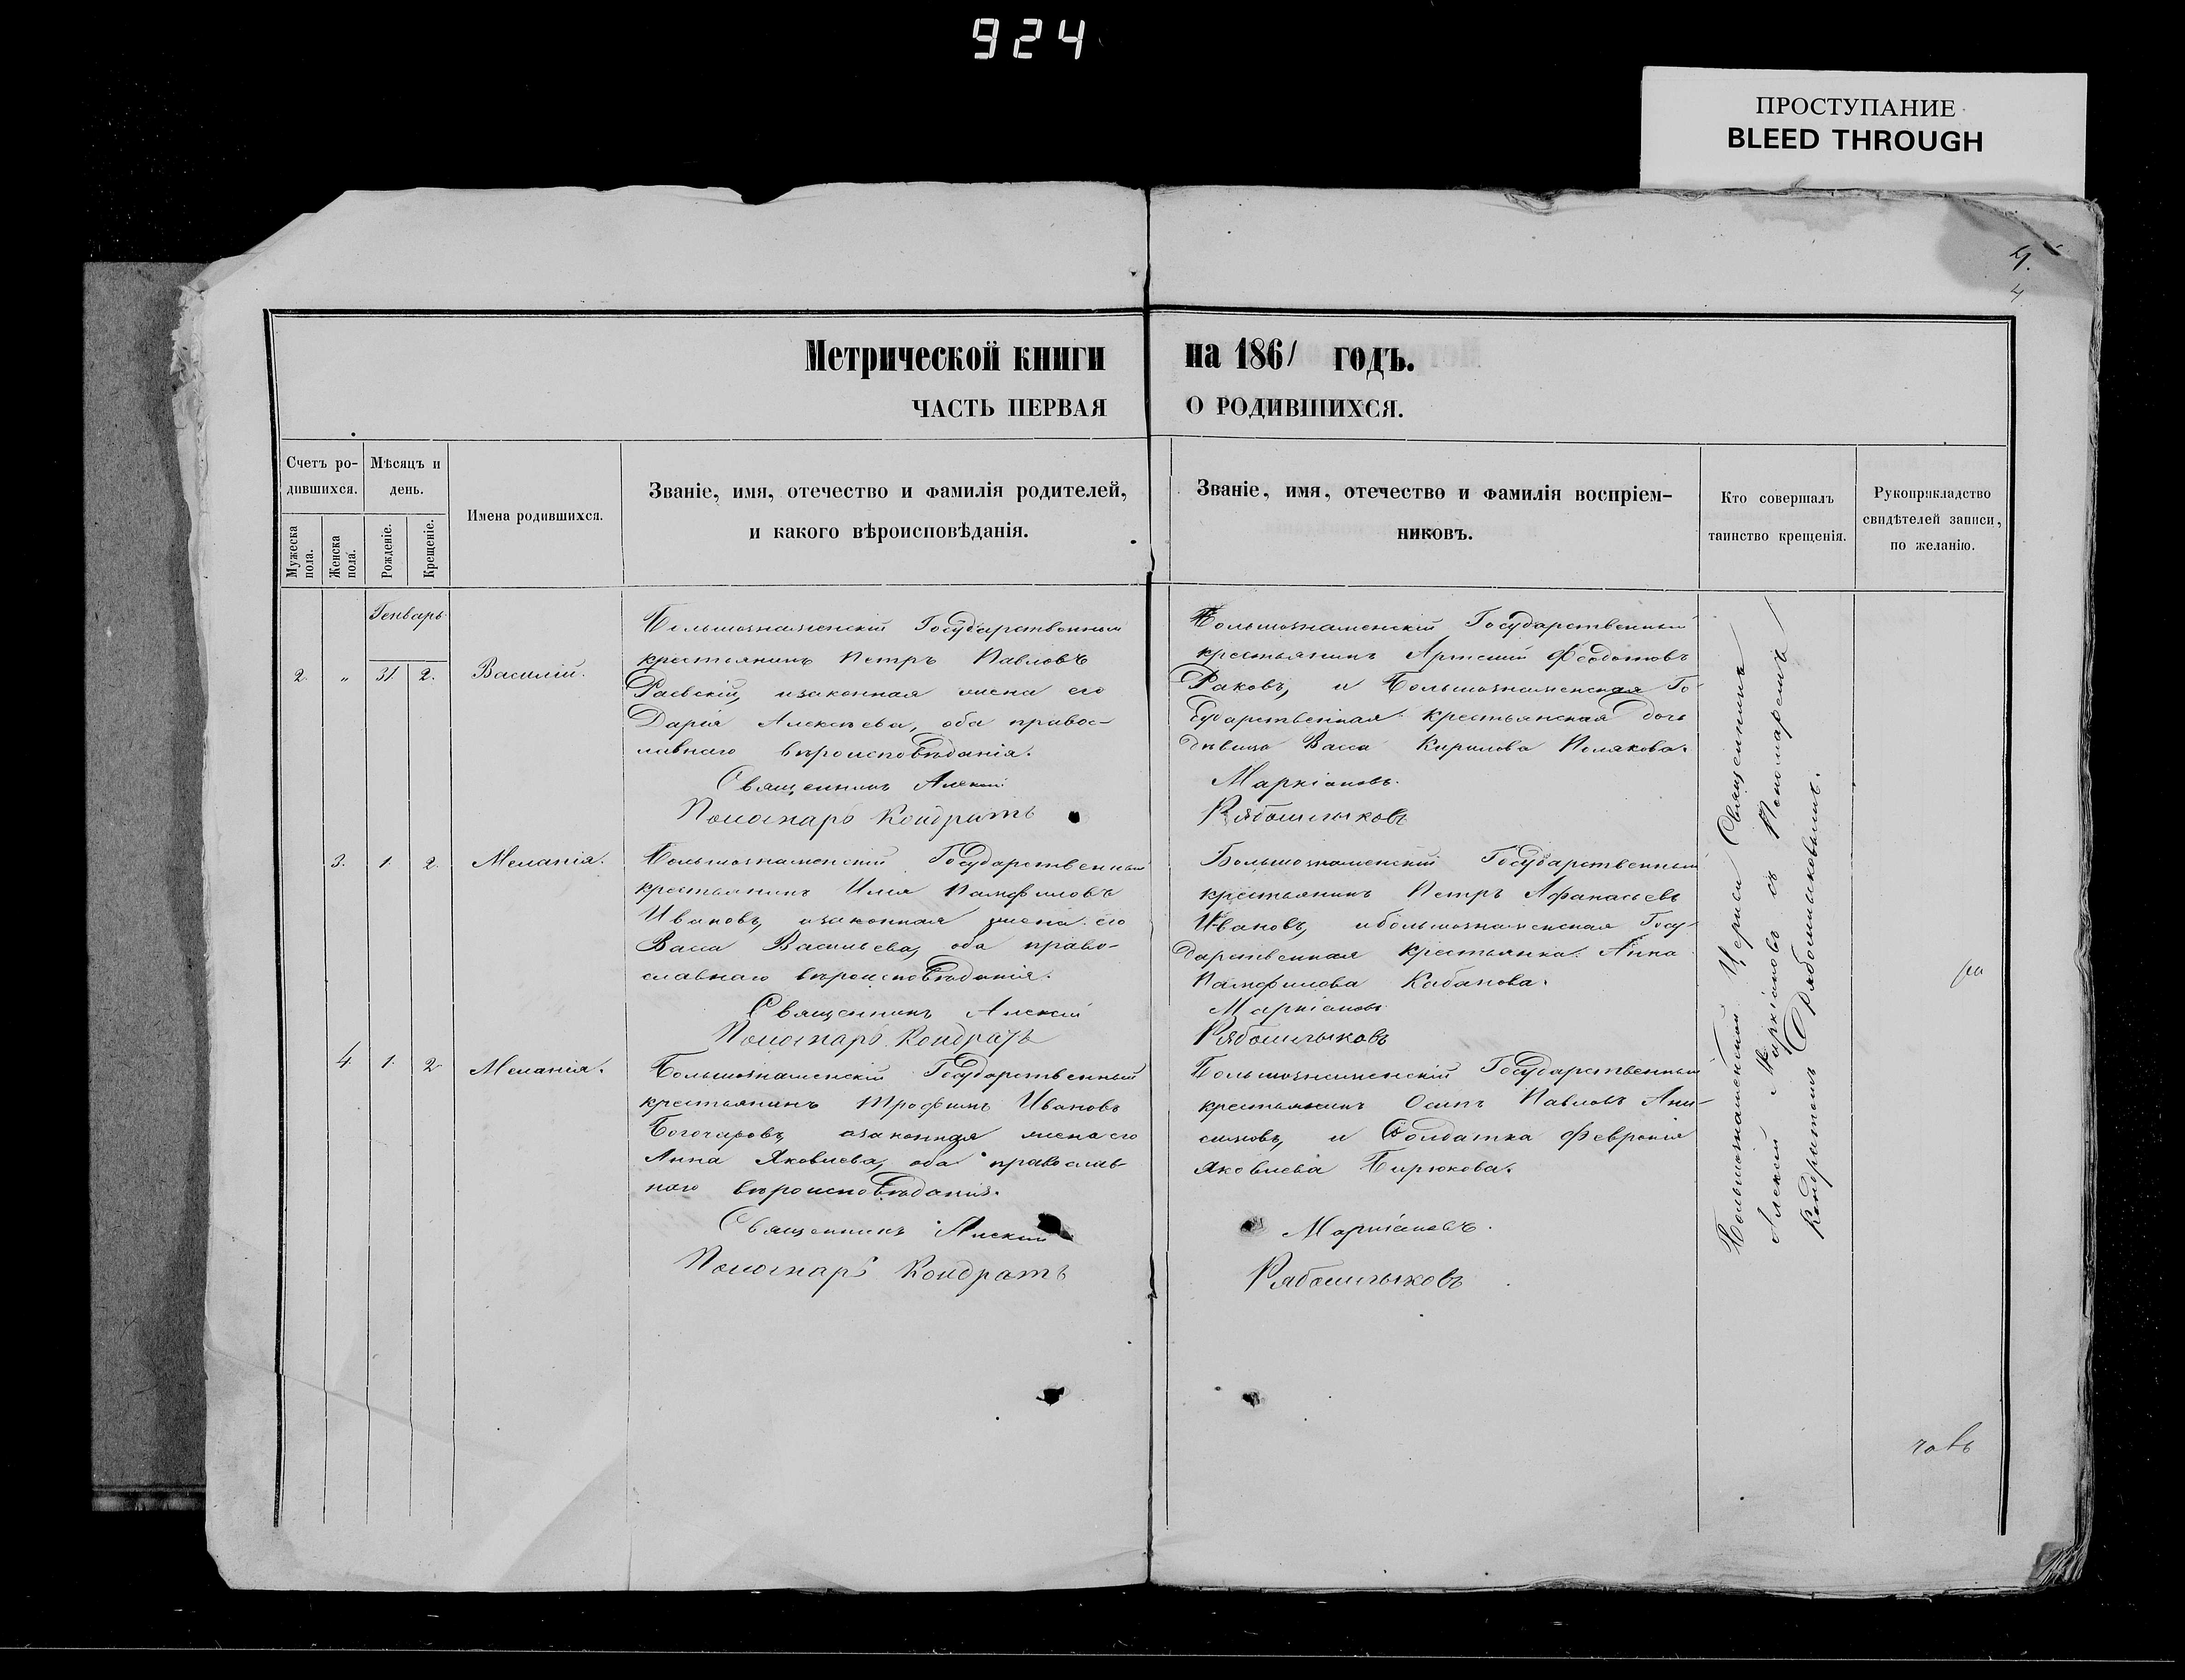 924
ПРОСТУПАНИЕ
BLEED THROUGH
4.
4
Метрической книги на 1861 годъ.
ЧАСТЬ ПЕРВАЯ О РОДИВШИХСЯ.
Счетъ ро-
дившихся.
Мужеска
пола.
Женска
пола.
Мѣсяцъ и
день.
Рожденіе.
Крещеніе.
Имена родившихся.
Званіе, имя, отечество и фамилія родителей,
и какого вѣроисповѣданія.
Званіе, имя, отечество и фамилія воспріем-
никовъ.
Кто совершалъ
таинство крещенія.
Рукоприкладство
свидѣтелей записи,
по желанію.
Генварь
2. „ 31 2. Василій.
Большознаменскій Государственный
крестьянинъ Петръ Павловъ
Раевскій, изаконная жена его
Дарія Алексѣева, оба правос-
лавнаго вѣроисповѣданія.
Священникъ Алексій
Пономарь Кондратъ
Большознаменскій Государственный
крестьянинъ Артемій Феодотовъ
Раковъ, и Большознаменская Го-
сударственная крестьянская дочь
дѣвица Васса Кирилова Полякова.
Маркіановъ.
Рябошлыковъ
3. 1. 2. Меланія.
Большознаменскій Государственный
крестьянинъ Илія Памфиловъ
Ивановъ, изаконная жена его
Васса Васильева, оба право-
славнаго вѣроисповѣданія.
Священникъ Алексій
Пономарь Кондратъ
Большознаменскій Государственный
крестьянинъ Петръ Афанасьевъ
Ивановъ, ибольшознаменская Госу-
дарственная крестьянка Анна
Памфилова Кабанова.
Маркіановъ
Рябошлыковъ
4 1. 2 Меланія.
Большознаменскій Государственный
крестьянинъ Трофимъ Ивановъ
Богочаровъ, изаконная жена его
Анна Яковлева, оба православ-
наго вѣроисповѣданія.
Священникъ Алексій
Пономарь Кондратъ
Большознаменскій Государственный
крестьянинъ Осипъ Павловъ Ани-
симовъ, и Солдатка Февронія
Яковлева Бирюкова.
Маркіановъ.
Рябошлыковъ
Большознаменской Церкви Священникъ
Алексій Маркіановъ съ Пономаремъ
Кондратомъ Рябошлыковымъ.
ровъ